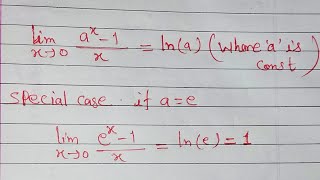 lim x→0 (a^x - 1)/x = ln(a) (where 'a' is const)
special case. if a=e
lim x→0 (e^x - 1)/x = ln(e) = 1